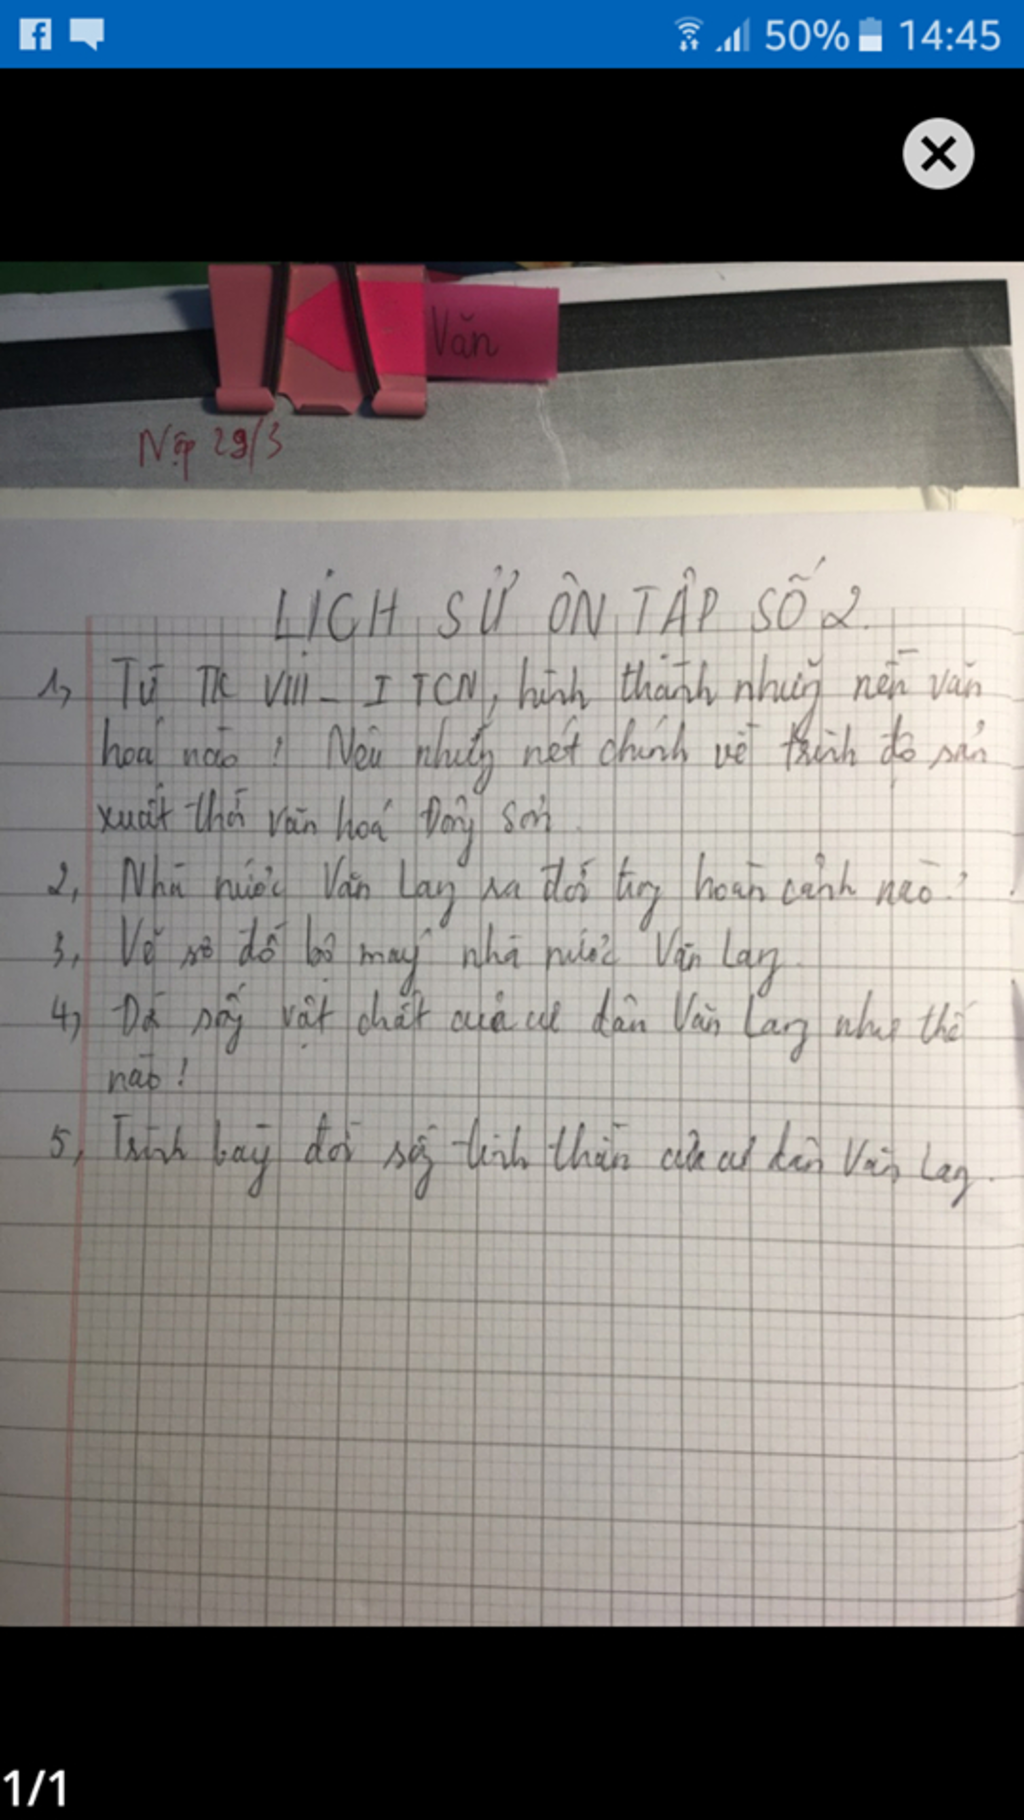 50% 14:45
Văn
Nộp 29/3
LỊCH SỬ ÔN TẬP SỐ 2.
1, Từ TK VIII - I TCN, hình thành những nền văn
hoá nào? Nêu những nét chính về trình độ sản
xuất thời văn hoá Đông Sơn.
2, Nhà nước Văn Lang ra đời trg hoàn cảnh nào?
3, Vẽ sơ đồ bộ máy nhà nước Văn Lang.
4, Đời sống vật chất của cư dân Văn Lang như thế
nào?
5, Trình bày đời sống tinh thần của cư dân Văn Lang.
1/1